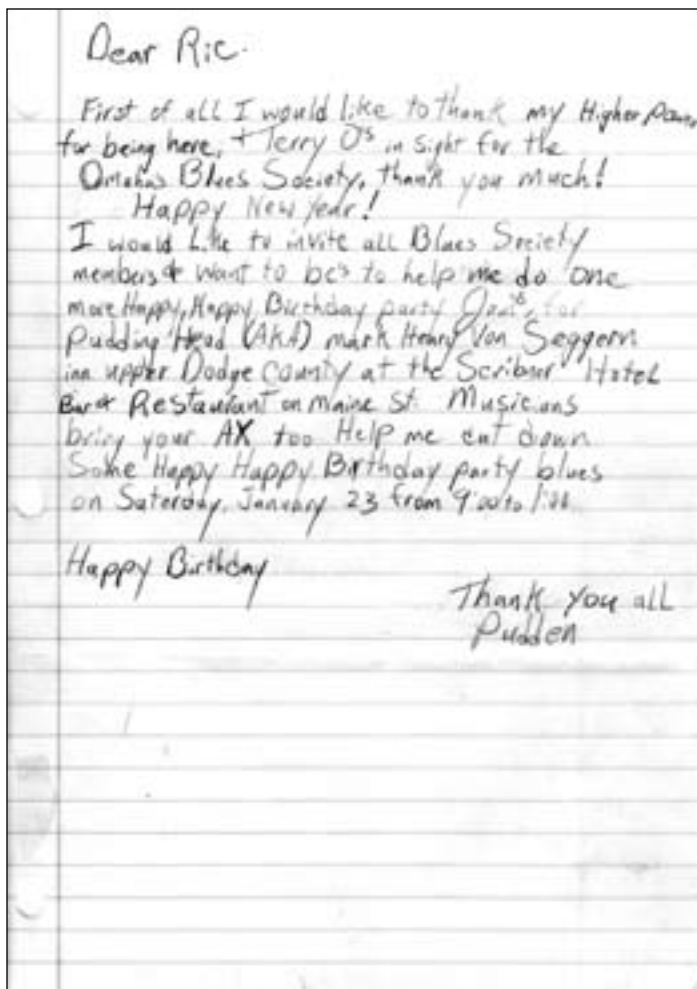 Dear Ric.
First of all I would like to thank my Higher Power
for being here, + Terry O's in sight for the
Omahas Blues Society, thank you much!
Happy New Year!
I would Like to invite all Blues Society
members & want to be's to help me do one
more Happy, Happy Birthday party for
Pudding Head (AKA) mark Henry Von Seggern
inn upper Dodge county at the Scribner Hotel
Bar & Restaurant on Maine St. Musicians
bring your AX too Help me cut down
Some Happy Happy Birthday party blues
on Saterday, January 23 from 9:00 to 1:00
Happy Birthday
Thank you all
Pudden